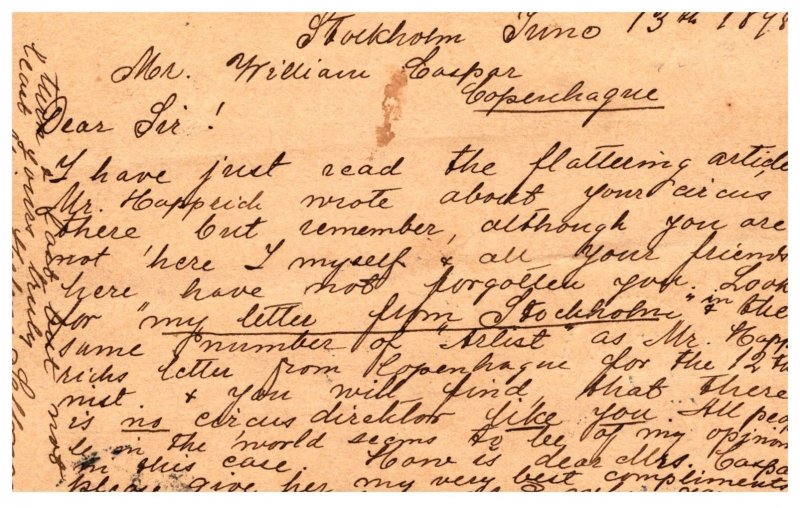 Stockholm Juno 13th 189
Mr. William Caspar
Copenhague
Dear Sir!
I have just read the flattering article
Mr. Happrich wrote about your circus
there but remember, although you are
not here I myself & all your friends
here have not forgotten you. Look
for "my letter from Stockholm" in the
same number of "Artist" as Mr. Happ
richs letter from Copenhague for the 12 th
inst & you will find that there
is no circus direktor like you. All peo
le in the world seems to be of my opinion
in this case. How is dear Mrs. Caspa
please give her my very best compliments
last but not
yours truly